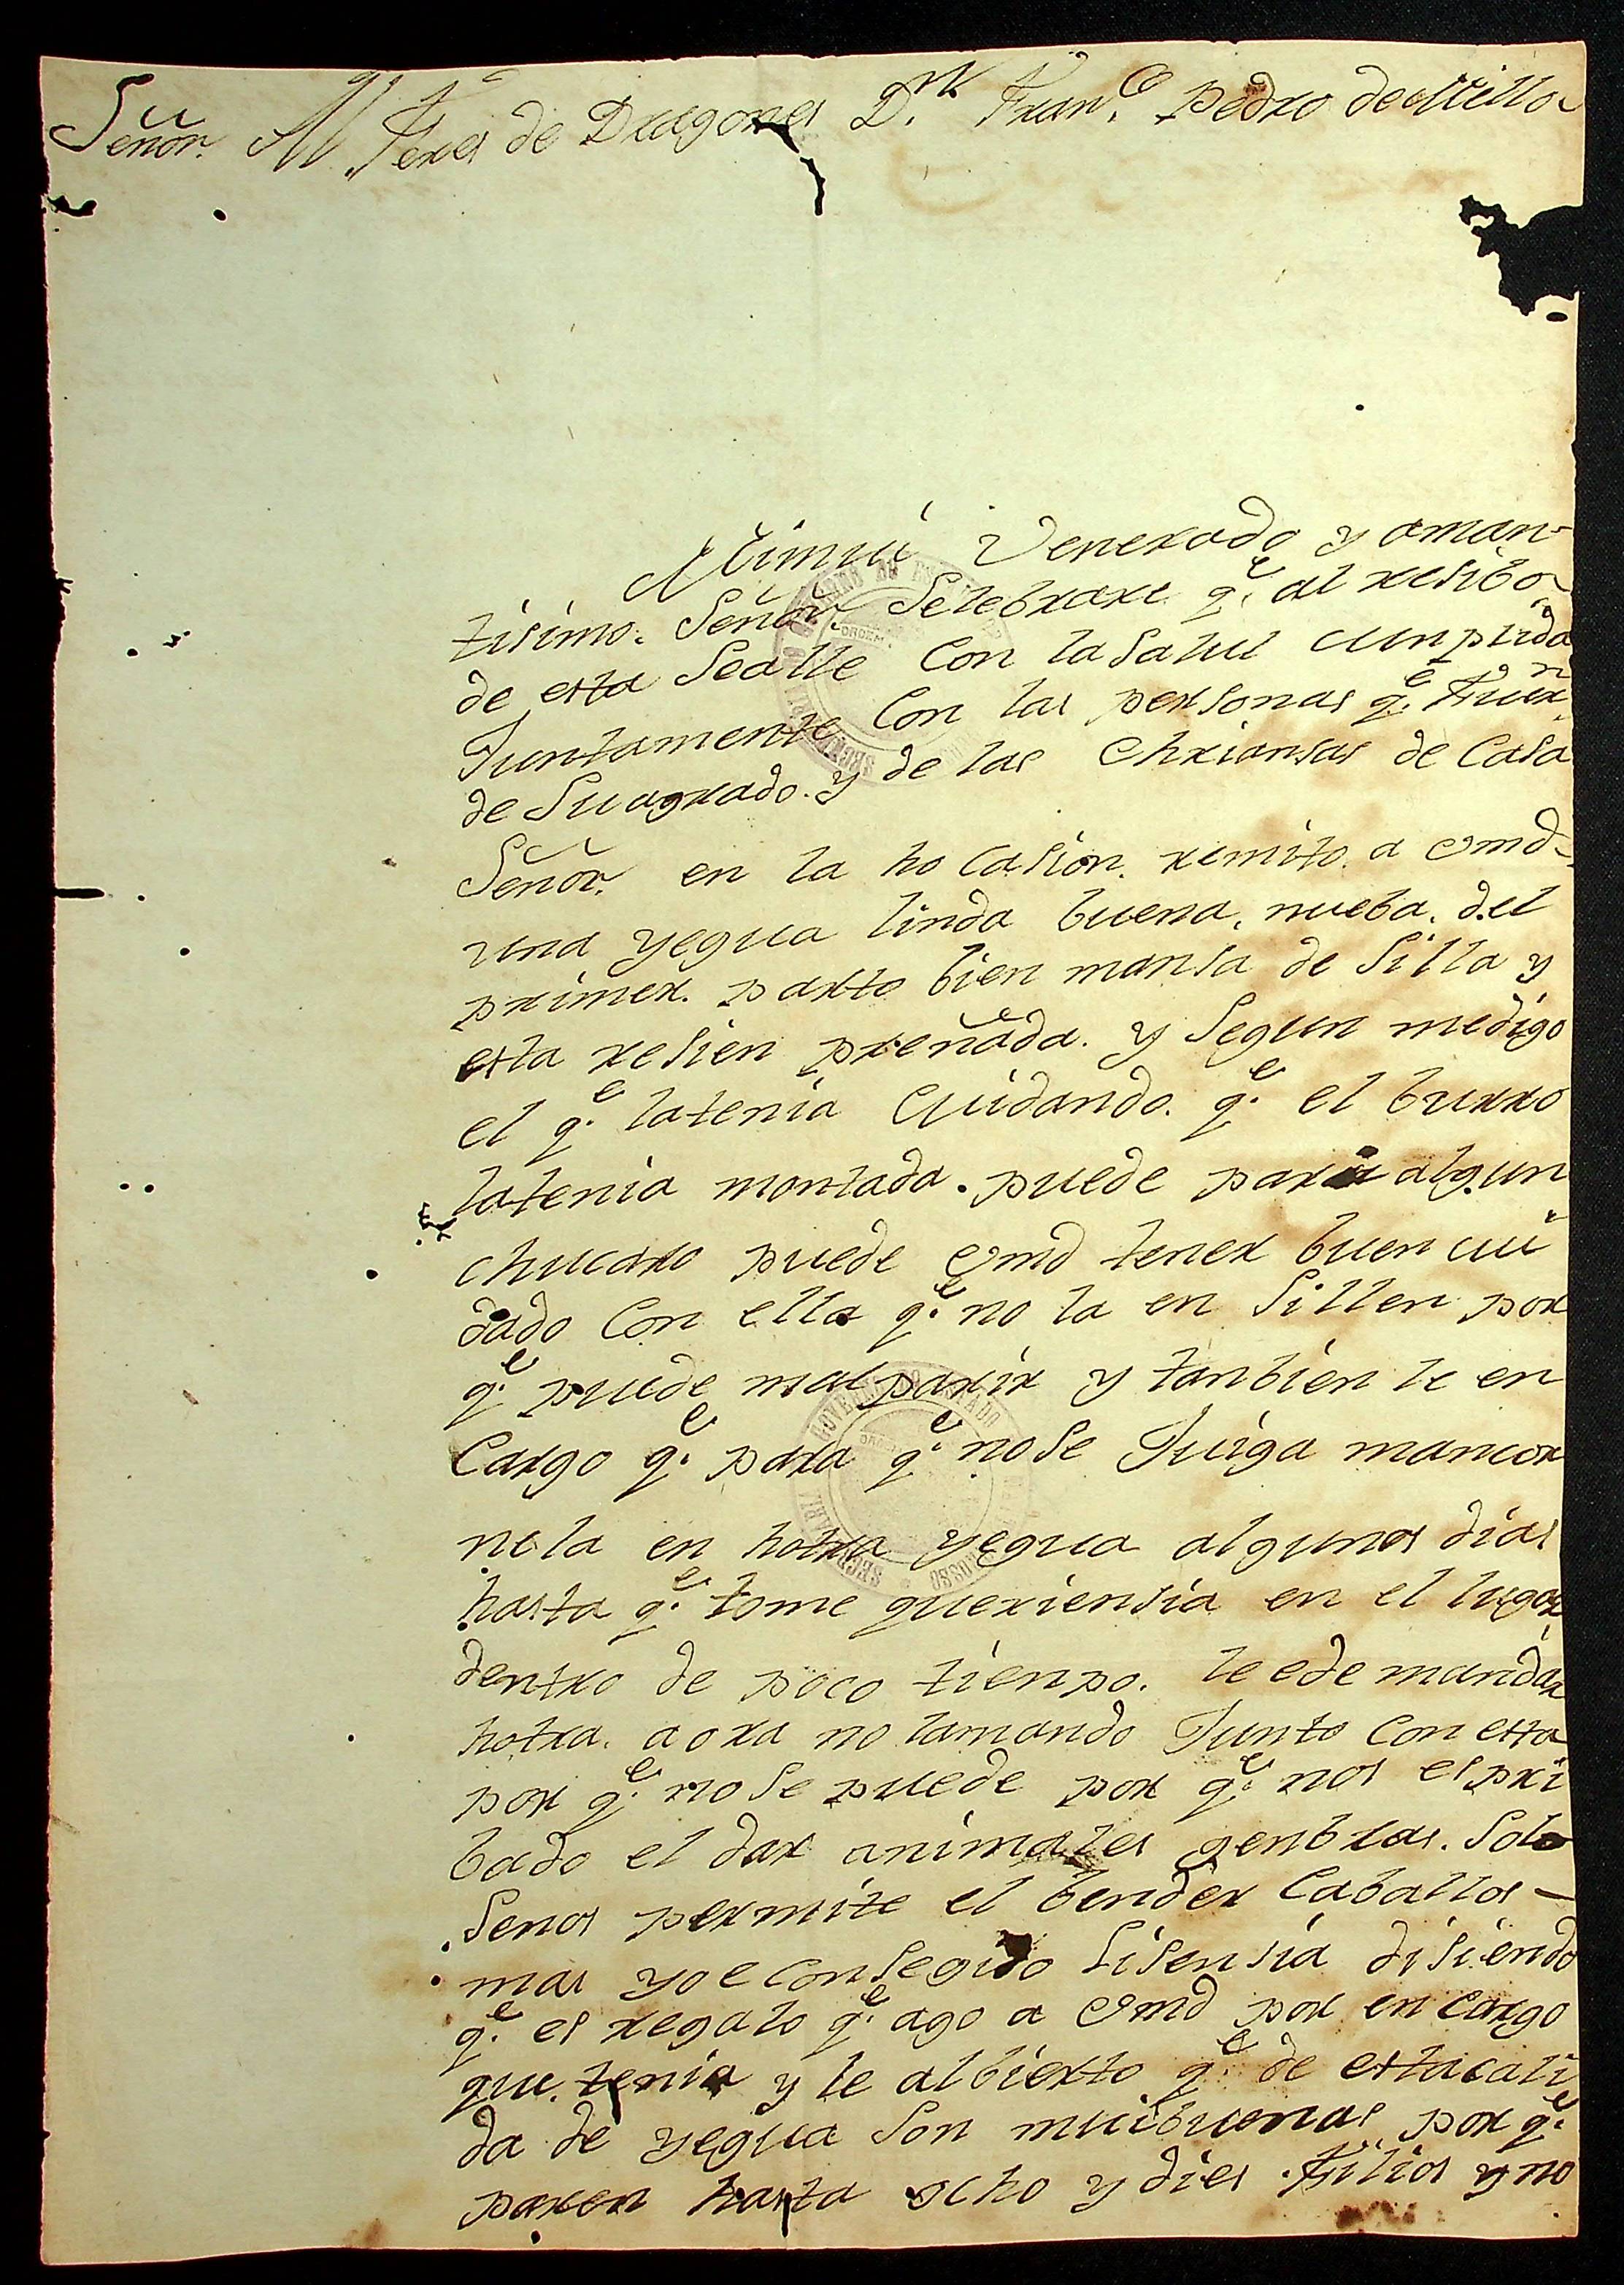 Señor. Alferes de Dragones D.n Fran.co Pedro de Mello
Mimui Venerado y aman-
tisimo. Señor. Selebrare q.e al resibo
de esta Sealle Con la Salul cunplida
Juntamente Con las personas q.e Fuer.n
de Su agrado. y de las Chriansas de Casa
Señor. en la ho Casion. remito. a Vmd-
una yegua linda buena, nueba. del
primer. parto bien mansa de Silla y
esta resien preñada. y Segun medigo
el q.e latenia Cuidando. q.e el burro
latenia montada. puede parir algun
chucaro puede Vmd tener buen cui
dado Con ella q.e no la en Sillen por
q.e puede mal parir y tanbien le en
Cargo q.e para q.e nose Juiga mancor
nela en hotra yegua algunos dias
hasta q.e tome queriensia en el lugar
dentro de poco tienpo. le ede mandar
hotra. aora no lamando Junto con esta
por q.e no Se puede por q.e nos es pri
bado el dar animales genbras. Solo
Senos permite el bender Caballos-
mas yo e Consegido lisensia disiendo
q.e es regalo q.e ago a Vmd por en cargo
que. tenia y le albierto q.e de estacali
da de yegua Son muibuenas por q.e
paren hasta ocho y dies Filios y no
GOVERNO DO ESTADO
SECRETARI
ORDEM